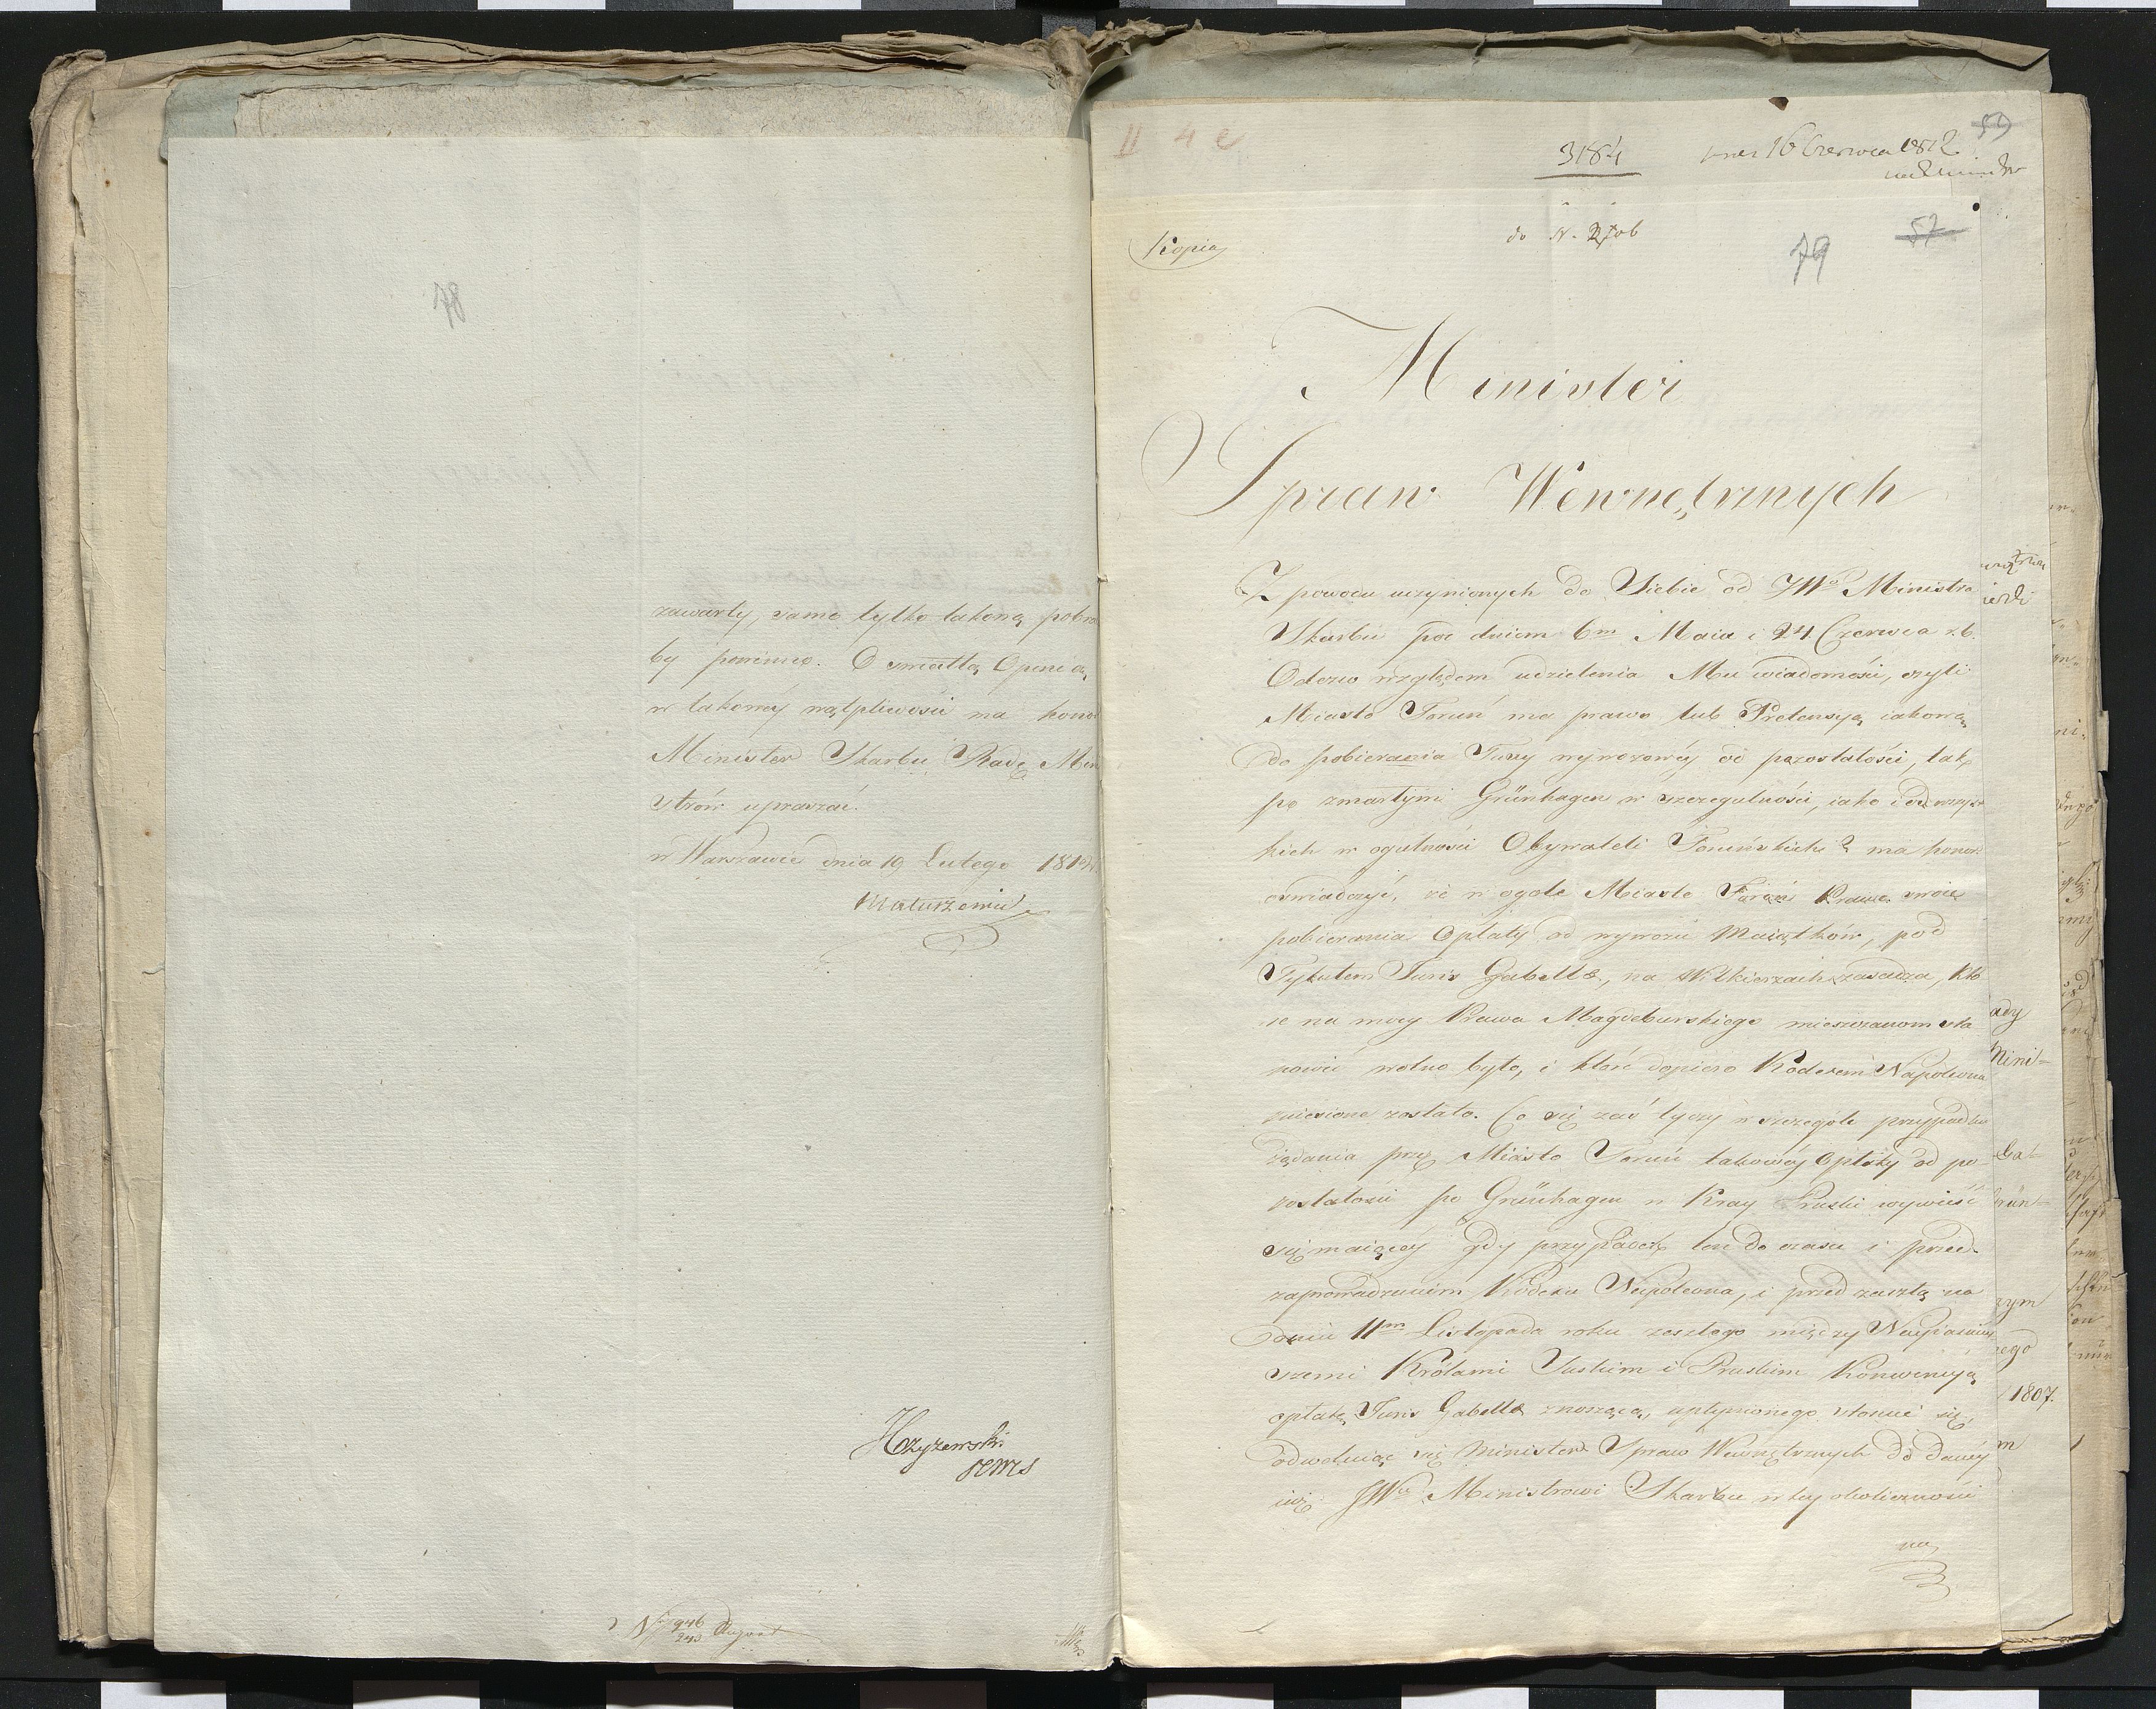 78
zawarty, samo tylko takową pobra
by powinno. O światłą Opinią
w takowéy wątpliwości ma honor
Minister Skarbu Radę Min
strów upraszać.
w Warszawie dnia 19 Lutego 181
Matuszewicz
N 1946
243
II 4 e
3184
16 Czerwca 1812
59
Kopia
do N.
79
57
Minister
Spraw Wewnętrznych
Z powodu uczynionych do Siebie od JWo Ministra
Skarbu pod dniem 6m Maia i 24 Czerwca r. b.
Odezw względem udzielenia Mu wiadomości, czyli
Miasto Toruń ma prawo lub Pretensyą iakową
do pobierania Juny wywozowéy od pozostałości, tak
po zmarłym Grünhagen w szczegulności, iako i od wszys
kich w ogulności Obywateli Toruńskich? ma honor
oświadczyć, że w ogóle Miasto Toruń Prawo swoie
pobierania Opłaty od wywozu Maiątków, pod
Tytułem Juris Gabellæ, na Wilkierzach zasadza, któ
re na mocy Prawa Magdeburskiego mieszczanom sta
nowić wolno było, i które dopiero Kodexem Napoleona
zniesione zostało. Co się zaś tyczy w szczególe przypadku
żądania przez Miasto Toruń takowéy Opłaty od po-
zostałości po Grünhagen w Kray Pruski wywieść
się maiącéy gdy przypadek ten do czasu i przed
zaprowadzeniem Kodexu Napoleona, i przed zaszłą na
dniu 11m Listopada roku zeszłego między Nayiaśniey
szemi Królami Saskim i Pruskim Konwencyą
opłatę Juris Gabellæ znoszącą, upłynionego stosuie się,
odwołuiąc się Minister Spraw Wewnętrznych do danéy
iuż JWu Ministrowi Skarbu w tey okoliczności
na
ady
Mini=
Ga=
rün=
zym
ego
1807.
m